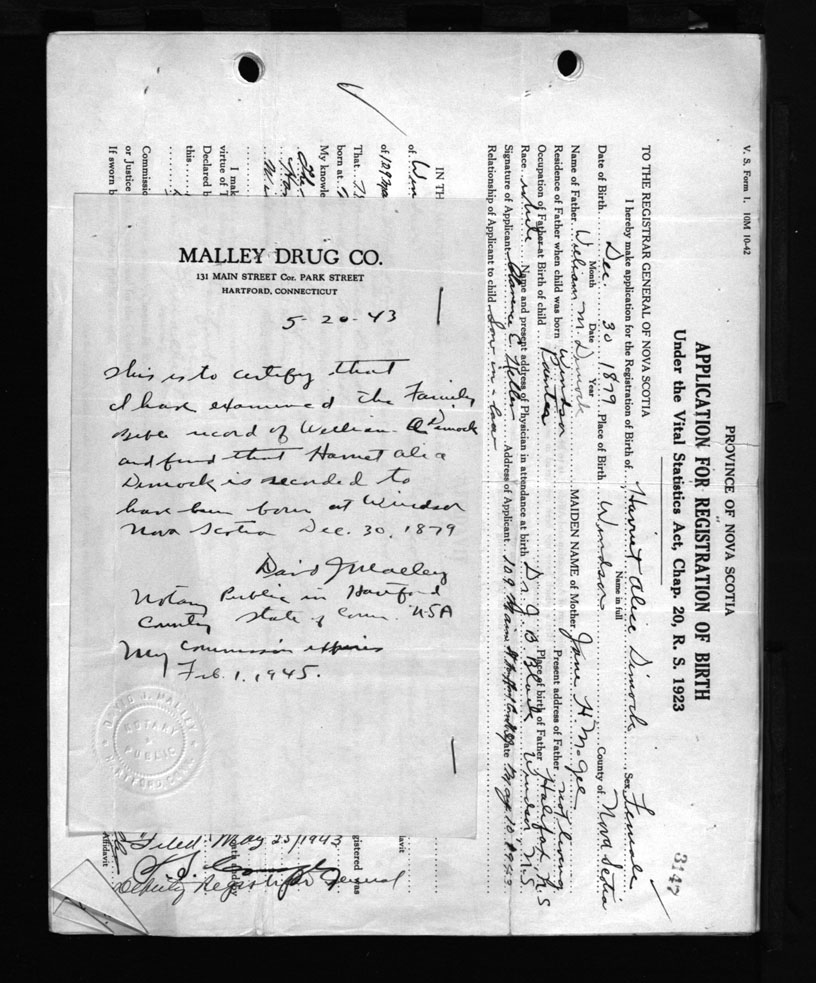 V. S. Form 1. 10M 10-42
PROVINCE OF NOVA SCOTIA
APPLICATION FOR REGISTRATION OF BIRTH
Under the Vital Statistics Act, Chap. 20, R. S. 1923
3147
TO THE REGISTRAR GENERAL OF NOVA SCOTIA
I hereby make application for the Registration of Birth of Harriet Alice Dimock Sex Female
Name in full
Date of Birth Dec. 30 1879 Place of Birth Windsor County of Nova Scotia
Month Date Year
Name of Father William M. Dimock MAIDEN NAME of Mother Jane H
Residence of Father when child was born Windsor Present address of Father not living
Occupation of Father at Birth of child Painter Place of birth of Father Halifax N.S
Race white Name and present address of Physician in attendance at birth Dr. J. B. Black Windsor N.S.
Signature of Applicant Clarence E. Address of Applicant 109 Date May 10 1943
Relationship of Applicant to child Son in law
IN TH
of
of 109
That
born at
My knowle
I mak
virtue of T
Declared b
this
Commissio
or Justice
If sworn b
MALLEY DRUG CO.
131 MAIN STREET Cor. PARK STREET
HARTFORD, CONNECTICUT
5-20-43
This is to certify that
I have examined the Family
Bible record of William Dimock
and find that Harriet Alice
Dimock is recorded to
have been born at Windsor
Nova Scotia Dec. 30, 1879
David J Malley
Notary Public in Hartford
County State of Conn. USA
My Commission expires
Feb. 1. 1945.
DAVID J. MALLEY
NOTARY
PUBLIC
HARTFORD, CONN.
davit
gistered was
Affidavit
Filed May 25/1943
Deputy Registrar General